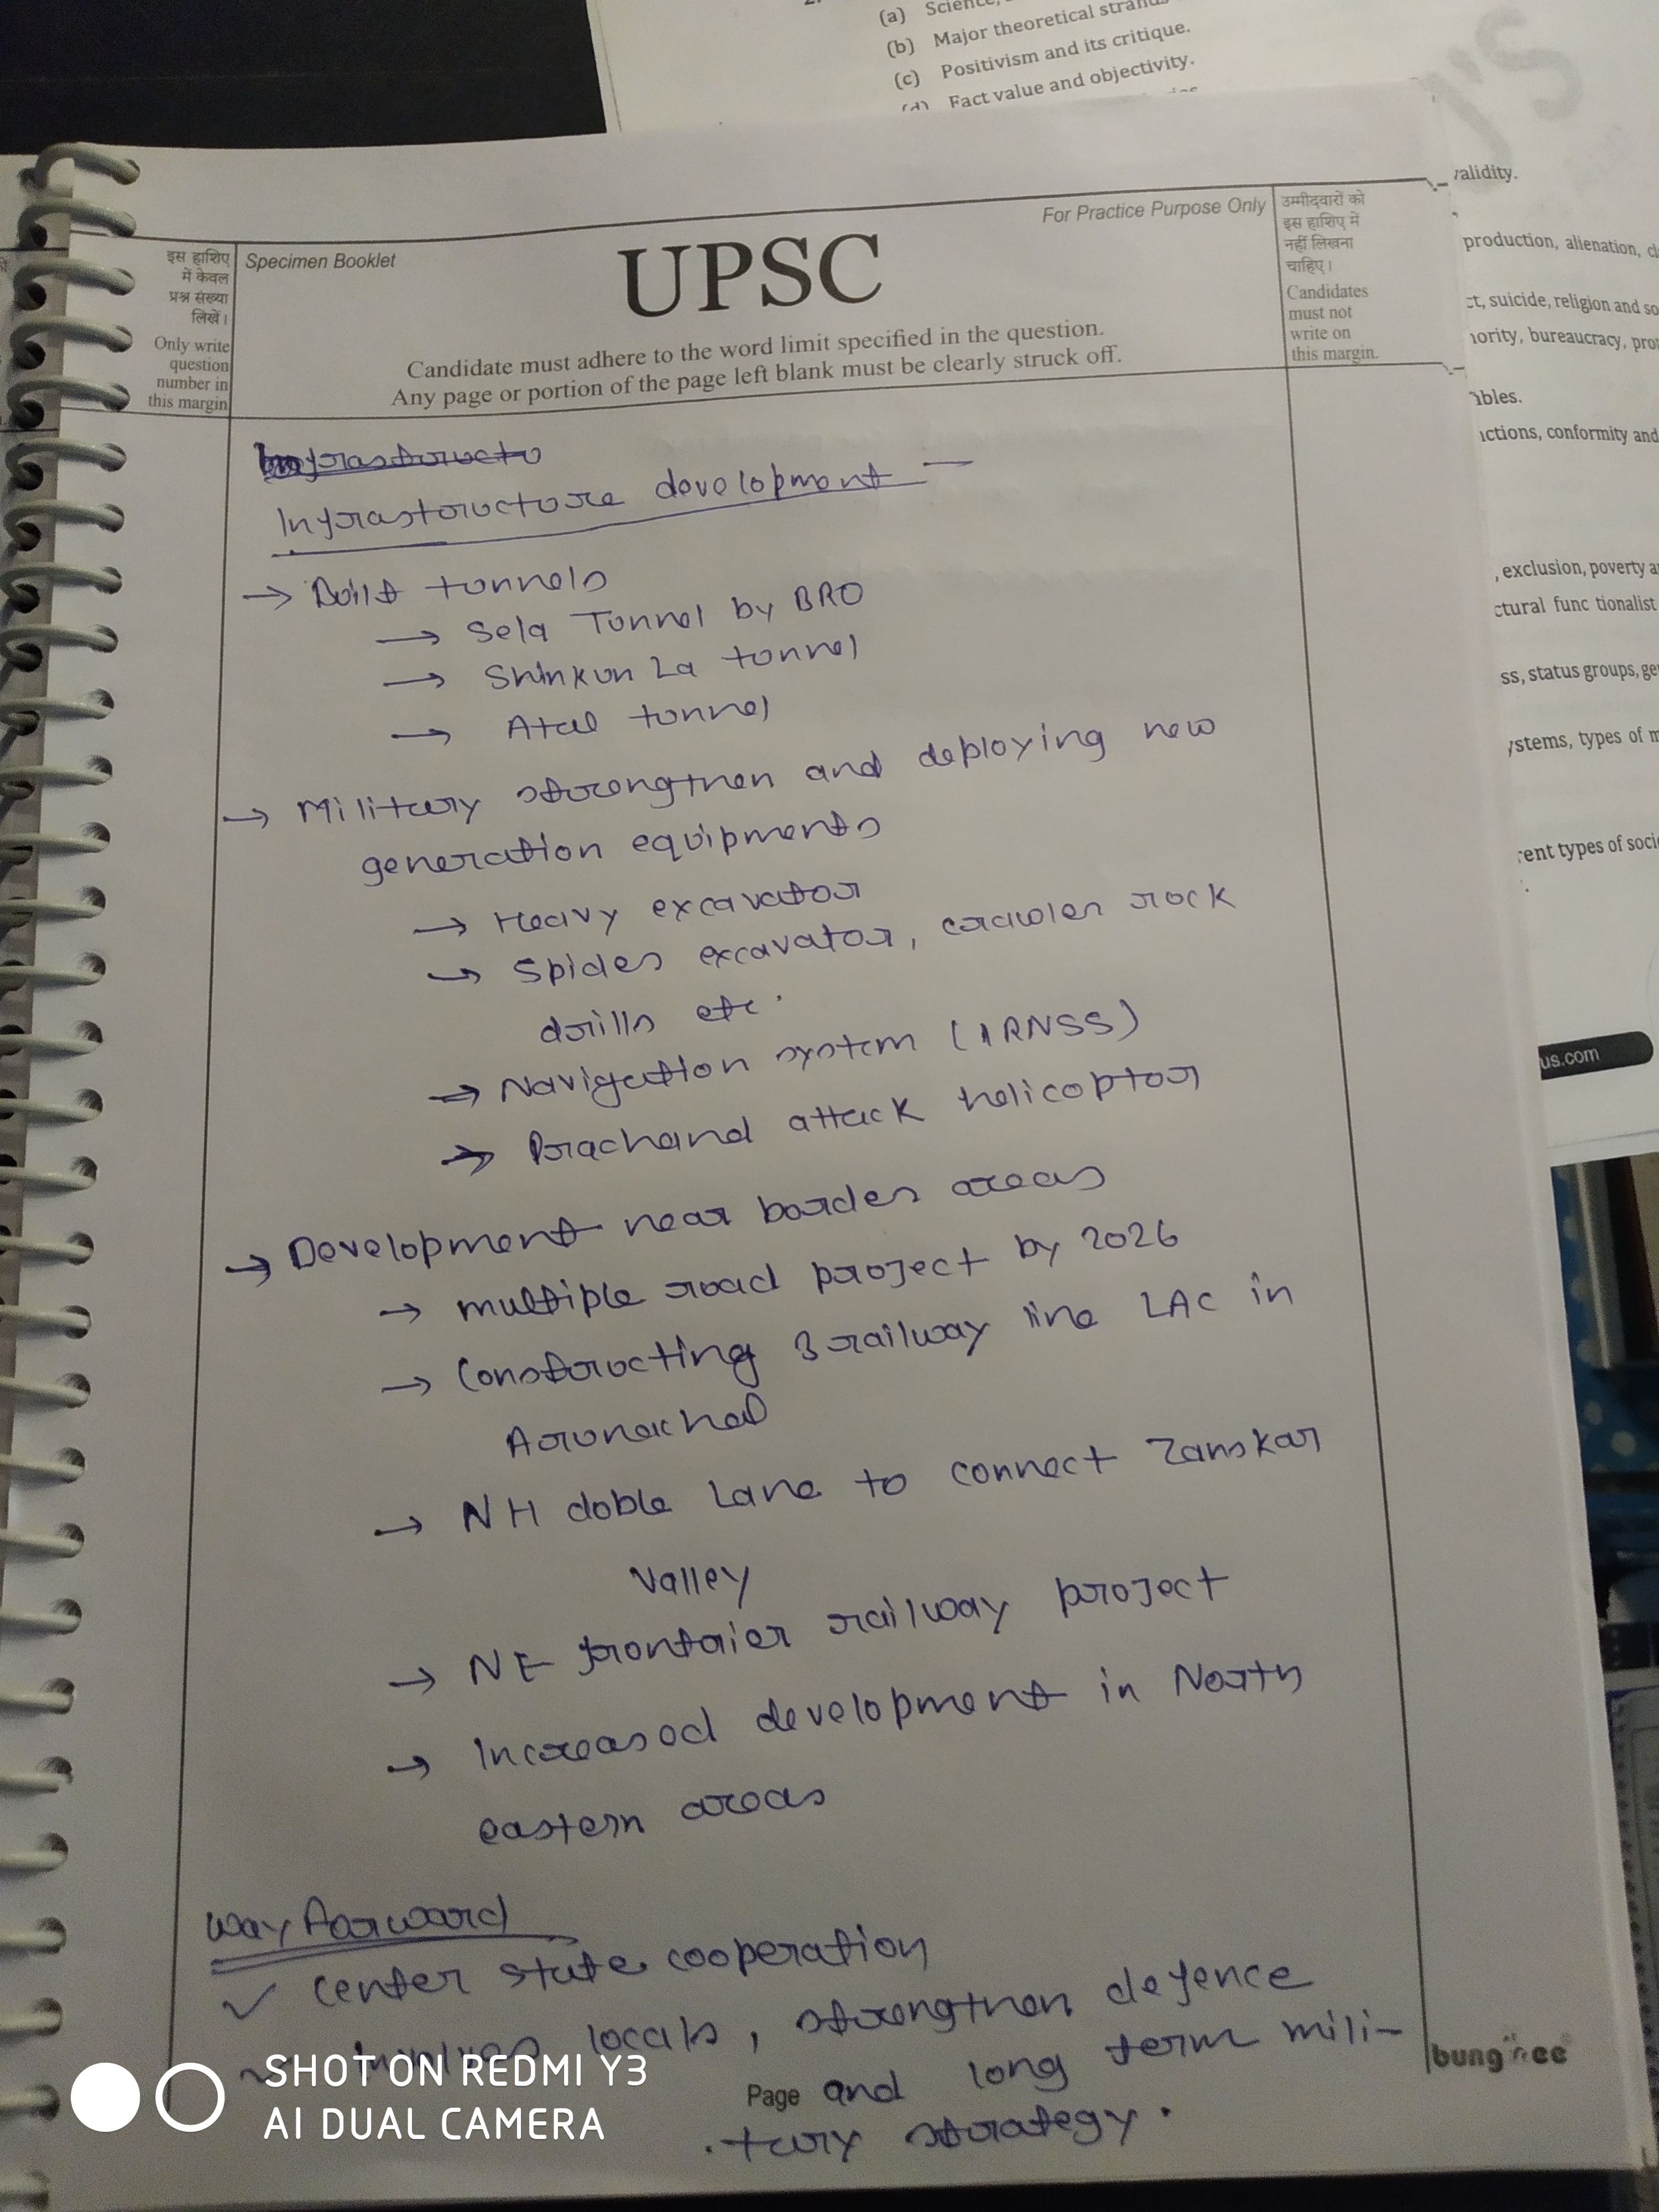 (a) Science,
(b) Major theoretical strands
(c) Positivism and its critique.
(d) Fact value and objectivity.
validity.
production, alienation,
ct, suicide, religion and so
nority, bureaucracy,
ables.
actions, conformity and
, exclusion, poverty
ctural func tionalist
ss, status groups,
ystems, types of
rent types of soci
us.com
इस हाशिए
में केवल
प्रश्न संख्या
लिखें।
Only write
question
number in
this margin
Specimen Booklet
UPSC
For Practice Purpose Only
Candidate must adhere to the word limit specified in the question.
Any page or portion of the page left blank must be clearly struck off.
उम्मीदवारों को
इस हाशिए में
नहीं लिखना
चाहिए।
Candidates
must not
write on
this margin.
Infrastructu
Infrastructure development -
→ Built tunnels
→ Sela Tunnel by BRO
→ Shinkun La tunnel
→ Atal tunnel
→ Military strengthen and deploying new
generation equipments
→ Heavy excavator
→ Spider excavator, crawler rock
drills etc.
→ Navigation system (IRNSS)
→ Prachand attack helicopter
→ Development near border areas
→ multiple road project by 2026
→ Constructing 3 railway line LAC in
Arunachal
→ NH doble Lane to connect Zanskar
Valley
→ NE frontaier railway project
→ Increased development in North
eastern areas
Way Forward
✓ center state cooperation
✓ involves locals, strengthen defence
and long term mili-
tary strategy.
Page
SHOT ON REDMI Y3
AI DUAL CAMERA